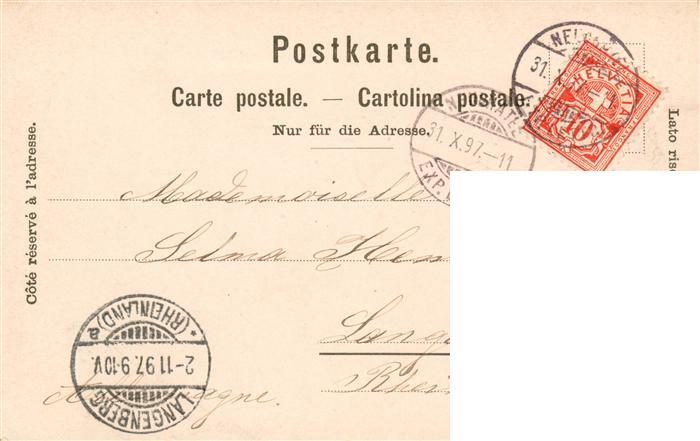 Postkarte.
Carte postale. — Cartolina postale.
Nur für die Adresse.
Côté réservé à l'adresse.
Lato ris
HELVETIA
10
31. X. 97.—11
EXP.
Mademoiselle
Selma Hen
Lang
Rhei
Allemagne.
LANGENBERG
2-11.97. 9-10V.
* (RHEINLAND) a